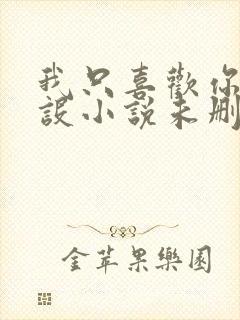 我只喜歡你
設小說未刪
金苹果樂園